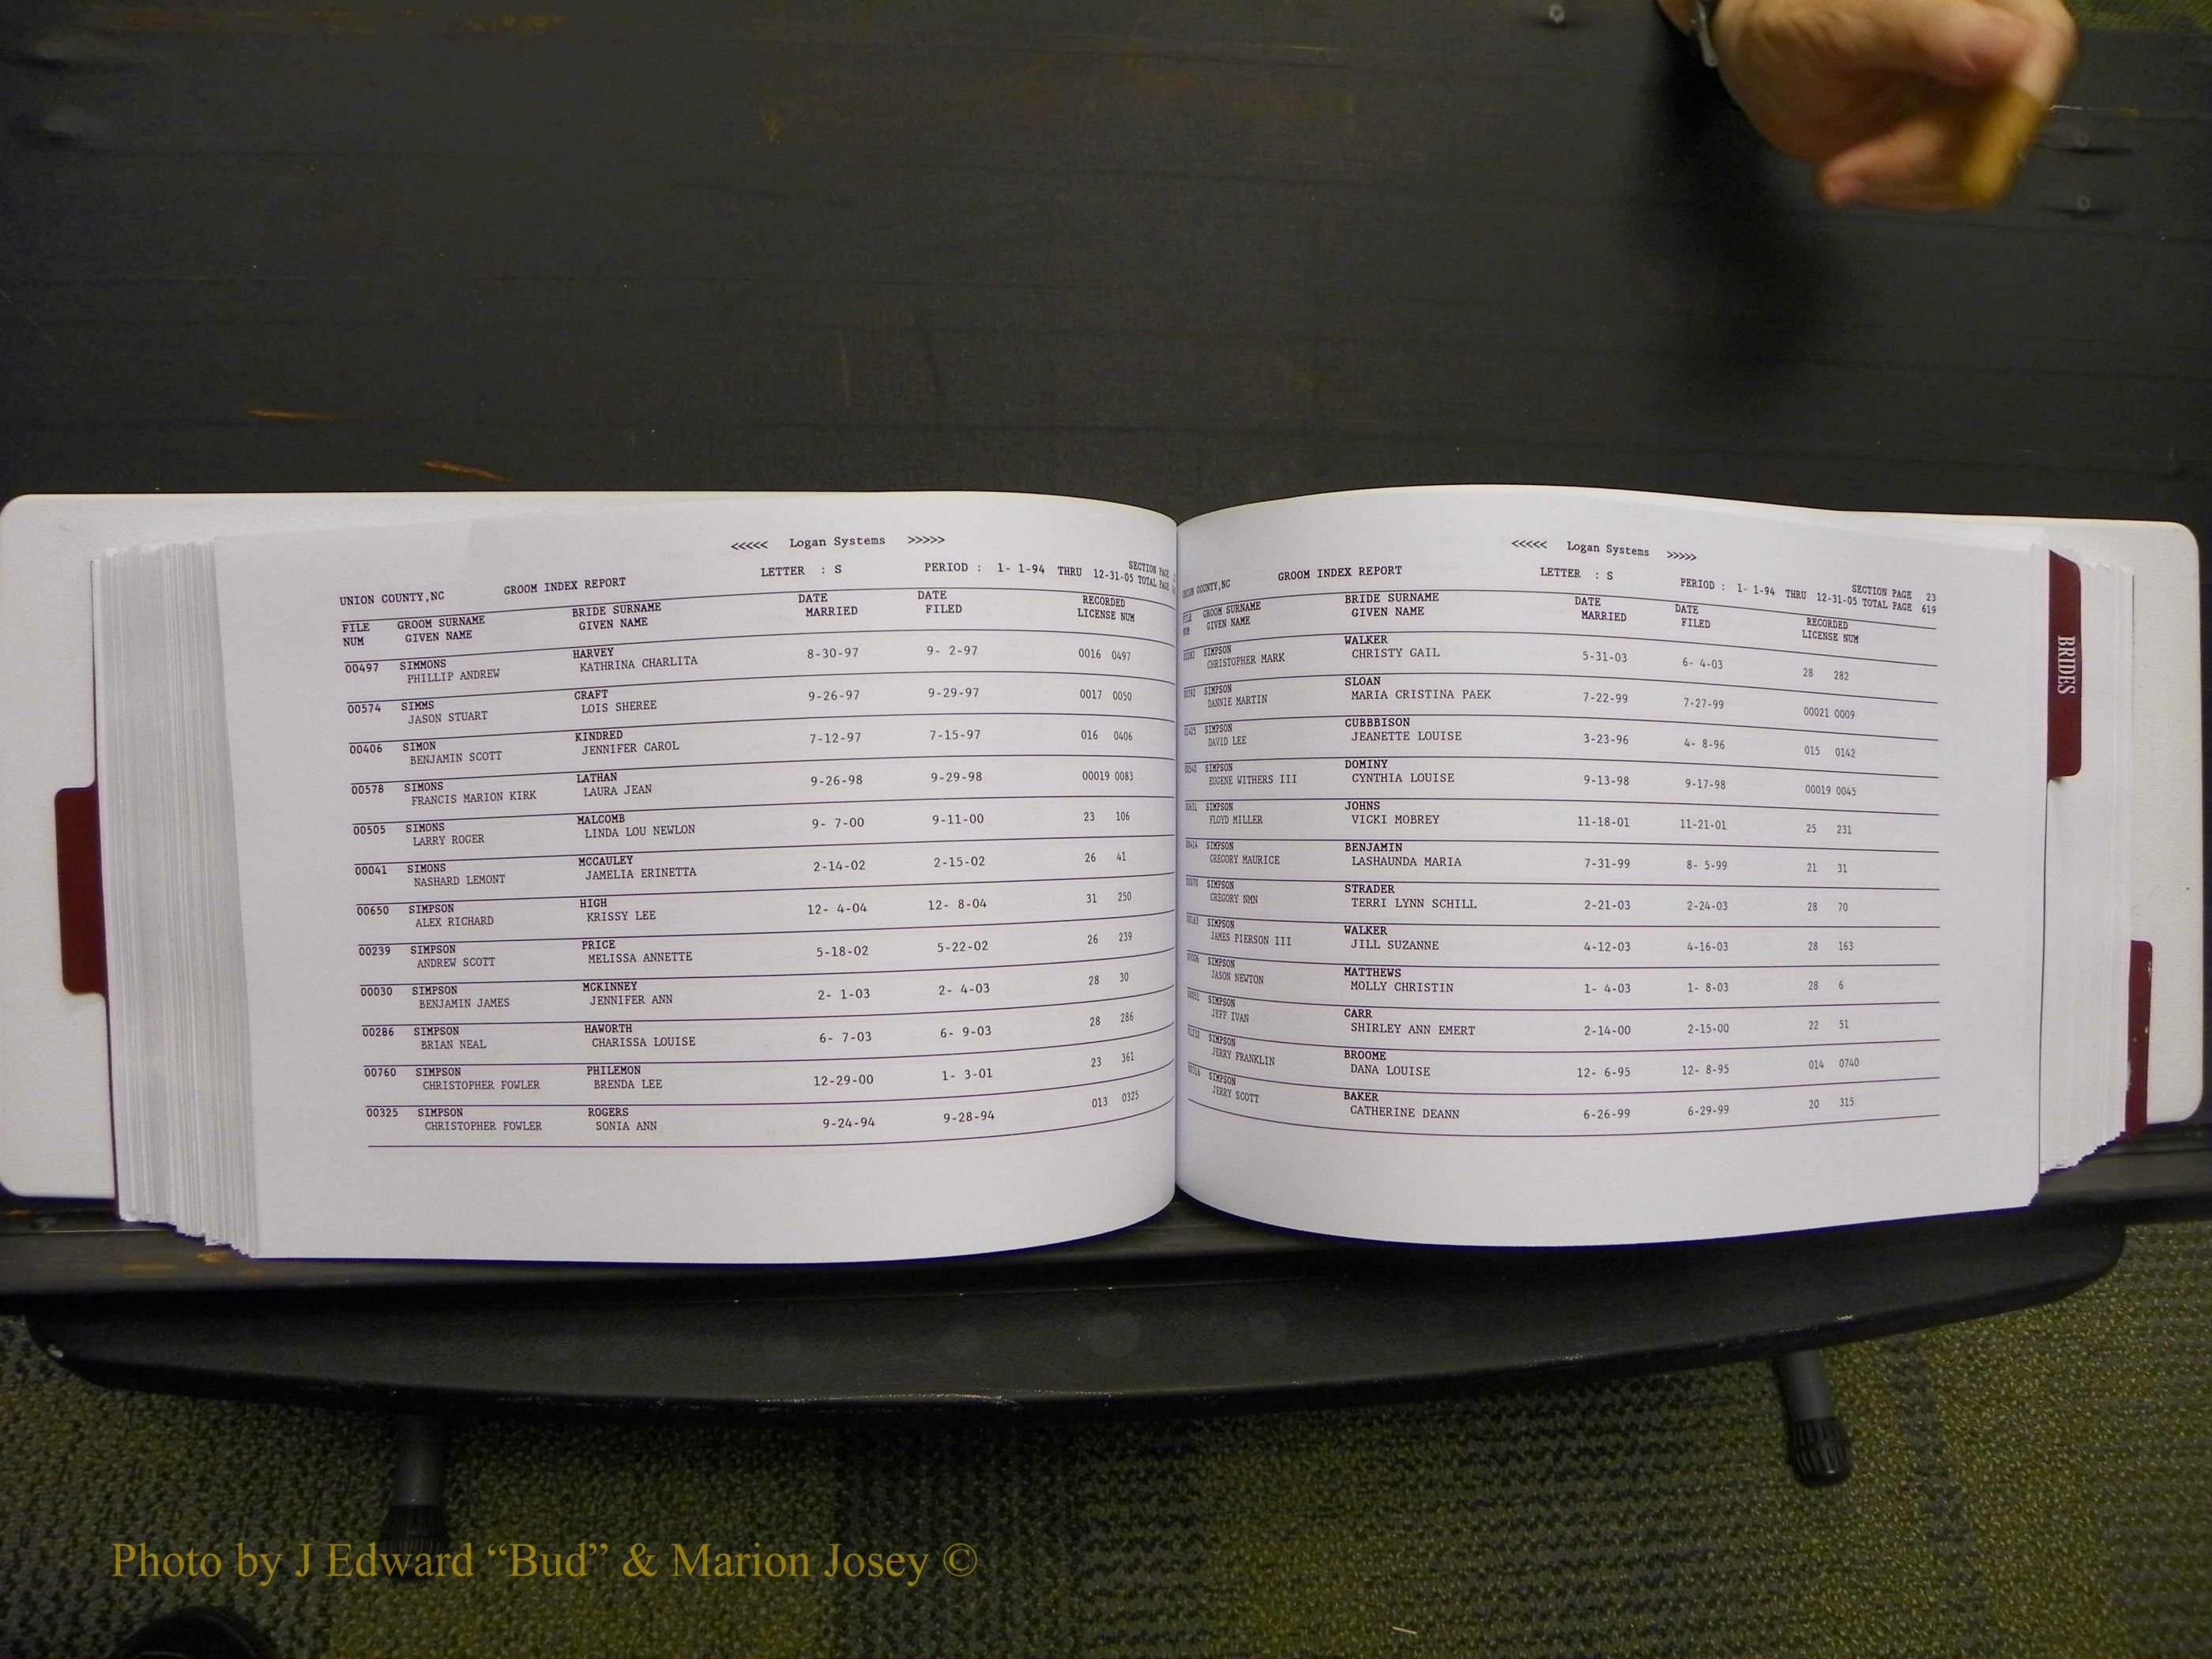 <<<<< Logan Systems >>>>>
UNION COUNTY,NC GROOM INDEX REPORT LETTER : S PERIOD : 1- 1-94 THRU 12-31-05 SECTION PAGE
TOTAL PAGE
FILE GROOM SURNAME BRIDE SURNAME DATE DATE RECORDED
NUM GIVEN NAME GIVEN NAME MARRIED FILED LICENSE NUM
00497 SIMMONS HARVEY 8-30-97 9- 2-97 0016 0497
PHILLIP ANDREW KATHRINA CHARLITA
00574 SIMMS CRAFT 9-26-97 9-29-97 0017 0050
JASON STUART LOIS SHEREE
00406 SIMON KINDRED 7-12-97 7-15-97 016 0406
BENJAMIN SCOTT JENNIFER CAROL
00578 SIMONS LATHAN 9-26-98 9-29-98 00019 0083
FRANCIS MARION KIRK LAURA JEAN
00505 SIMONS MALCOMB 9- 7-00 9-11-00 23 106
LARRY ROGER LINDA LOU NEWLON
00041 SIMONS MCCAULEY 2-14-02 2-15-02 26 41
NASHARD LEMONT JAMELIA ERINETTA
00650 SIMPSON HIGH 12- 4-04 12- 8-04 31 250
ALEX RICHARD KRISSY LEE
00239 SIMPSON PRICE 5-18-02 5-22-02 26 239
ANDREW SCOTT MELISSA ANNETTE
00030 SIMPSON MCKINNEY 2- 1-03 2- 4-03 28 30
BENJAMIN JAMES JENNIFER ANN
00286 SIMPSON HAWORTH 6- 7-03 6- 9-03 28 286
BRIAN NEAL CHARISSA LOUISE
00760 SIMPSON PHILEMON 12-29-00 1- 3-01 23 361
CHRISTOPHER FOWLER BRENDA LEE
00325 SIMPSON ROGERS 9-24-94 9-28-94 013 0325
CHRISTOPHER FOWLER SONIA ANN
<<<<< Logan Systems >>>>>
UNION COUNTY,NC GROOM INDEX REPORT LETTER : S PERIOD : 1- 1-94 THRU 12-31-05 SECTION PAGE 23
TOTAL PAGE 619
FILE GROOM SURNAME BRIDE SURNAME DATE DATE RECORDED
NUM GIVEN NAME GIVEN NAME MARRIED FILED LICENSE NUM
SIMPSON WALKER 5-31-03 6- 4-03 28 282
CHRISTOPHER MARK CHRISTY GAIL
SIMPSON SLOAN 7-22-99 7-27-99 00021 0009
DANNIE MARTIN MARIA CRISTINA PAEK
SIMPSON CUBBBISON 3-23-96 4- 8-96 015 0142
DAVID LEE JEANETTE LOUISE
SIMPSON DOMINY 9-13-98 9-17-98 00019 0045
EUGENE WITHERS III CYNTHIA LOUISE
SIMPSON JOHNS 11-18-01 11-21-01 25 231
FLOYD MILLER VICKI MOBREY
SIMPSON BENJAMIN 7-31-99 8- 5-99 21 31
GREGORY MAURICE LASHAUNDA MARIA
SIMPSON STRADER 2-21-03 2-24-03 28 70
GREGORY NMN TERRI LYNN SCHILL
SIMPSON WALKER 4-12-03 4-16-03 28 163
JAMES PIERSON III JILL SUZANNE
SIMPSON MATTHEWS 1- 4-03 1- 8-03 28 6
JASON NEWTON MOLLY CHRISTIN
SIMPSON CARR 2-14-00 2-15-00 22 51
JEFF IVAN SHIRLEY ANN EMERT
SIMPSON BROOME 12- 6-95 12- 8-95 014 0740
JERRY FRANKLIN DANA LOUISE
SIMPSON BAKER 6-26-99 6-29-99 20 315
JERRY SCOTT CATHERINE DEANN
BRIDES
Photo by J Edward “Bud” & Marion Josey ©